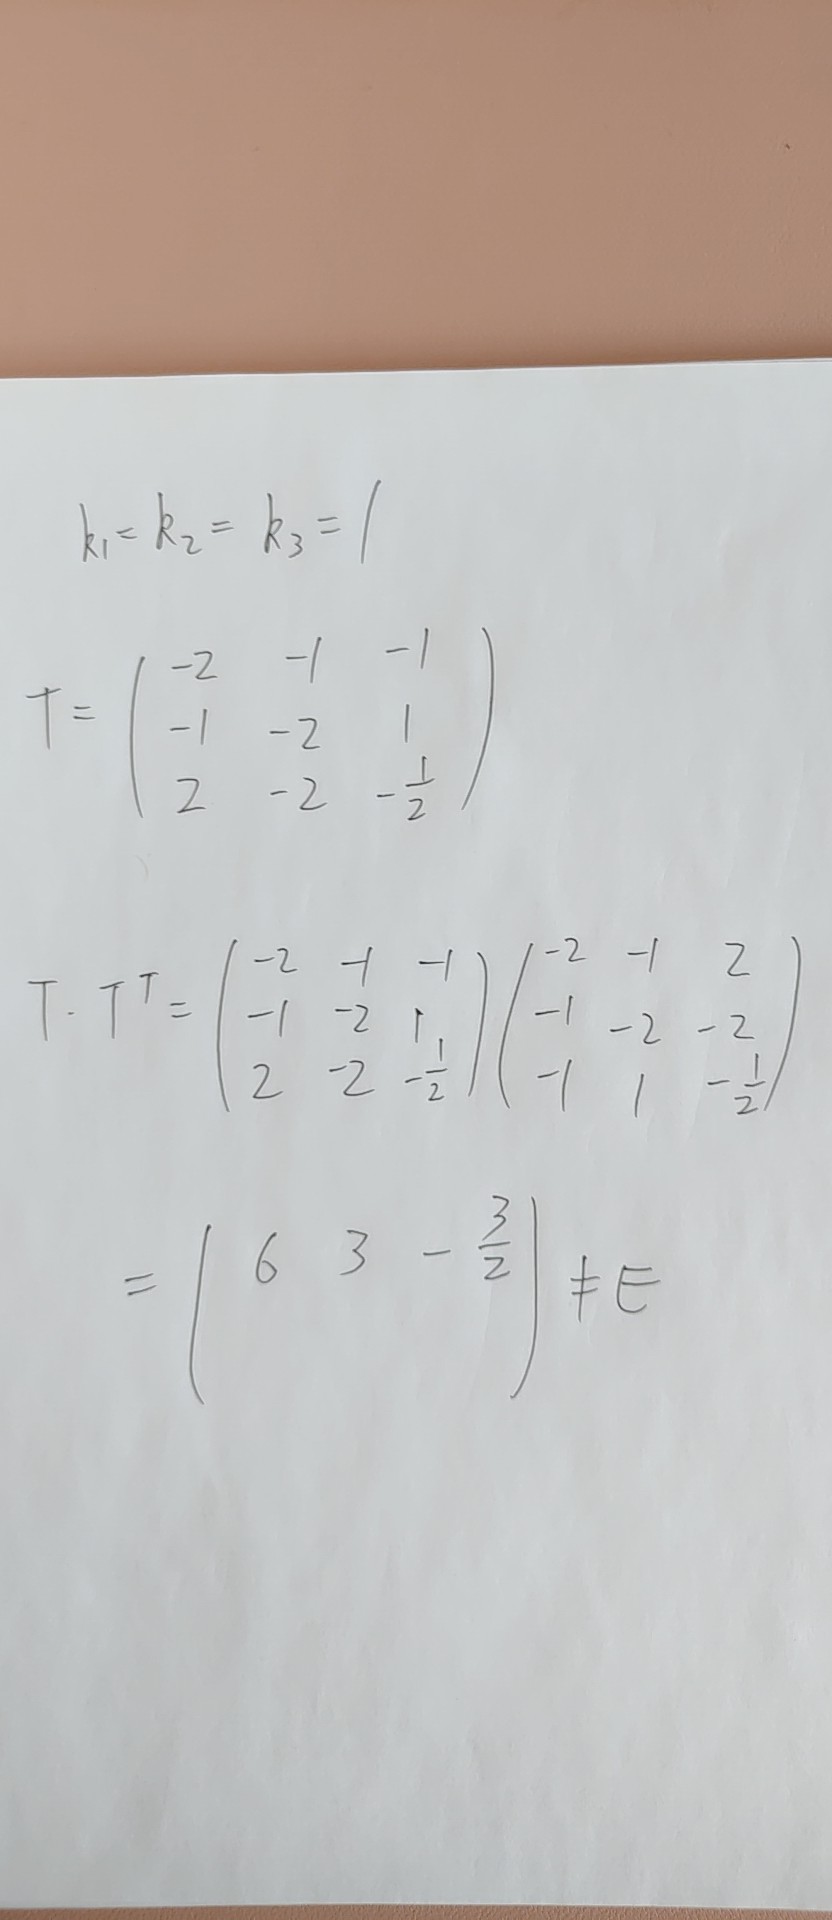 k₁ = k₂ = k₃ = 1
T = ( -2 -1 -1
-1 -2 1
2 -2 -1/2 )
T · Tᵀ = ( -2 -1 -1 ) ( -2 -1 2 )
( -1 -2 1 ) ( -1 -2 -2 )
( 2 -2 -1/2 ) ( -1 1 -1/2 )
= ( 6 3 -3/2 ) ≠ E